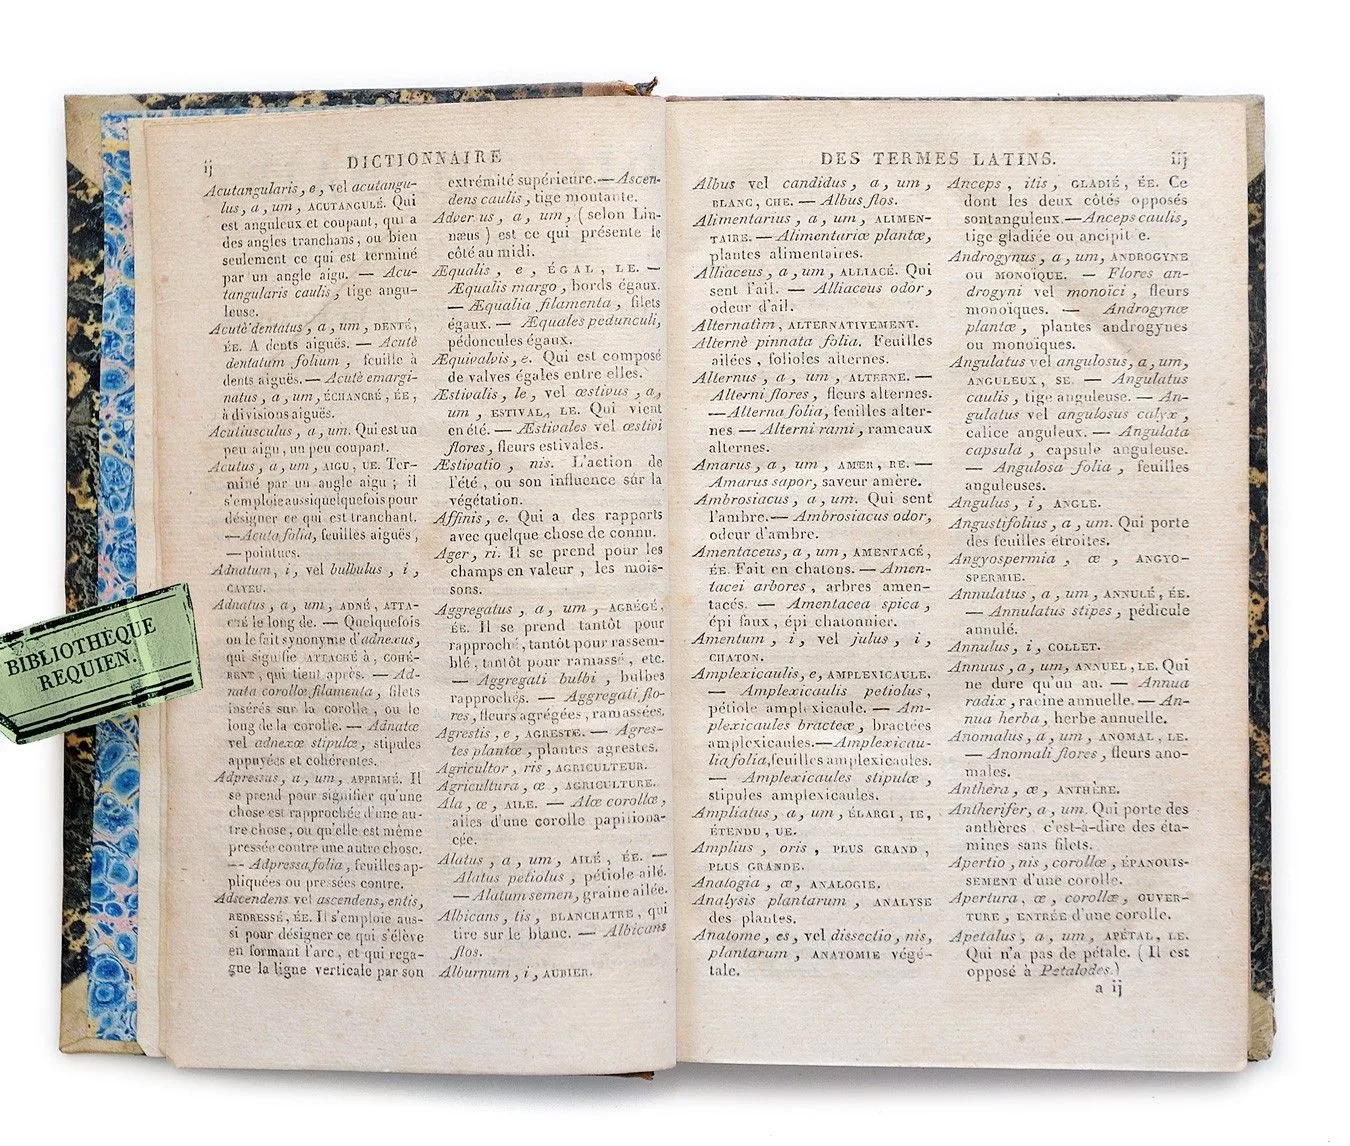 BIBLIOTHÈQUE
REQUIEN.
ij
DICTIONNAIRE
Acutangularis, e, vel acutangu-
lus, a, um, ACUTANGULÉ. Qui
est anguleux et coupant, qui a
des angles tranchans, ou bien
seulement ce qui est terminé
par un angle aigu. — Acu-
tangularis caulis, tige angu-
leuse.
Acutè dentatus, a, um, DENTÉ,
ÉE. A dents aiguës. — Acutè
dentatum folium, feuille à
dents aiguës. — Acutè emargi-
natus, a, um, ÉCHANCRÉ, ÉE,
à divisions aiguës.
Acutiusculus, a, um. Qui est un
peu aigu, un peu coupant.
Acutus, a, um, AIGU, UE. Ter-
miné par un angle aigu ; il
s'emploie aussi quelquefois pour
désigner ce qui est tranchant.
— Acuta folia, feuilles aiguës,
— pointues.
Adnatum, i, vel bulbulus, i,
CAYEU.
Adnatus, a, um, ADNÉ, ATTA-
CHÉ le long de. — Quelquefois
on le fait synonyme d'adnexus,
qui signifie ATTACHÉ à, COHÉ-
RENT, qui tient après. — Ad-
nata corollæ filamenta, filets
insérés sur la corolle, ou le
long de la corolle. — Adnatæ
vel adnexæ stipulæ, stipules
appuyées et cohérentes.
Adpressus, a, um, APPRIMÉ. Il
se prend pour signifier qu'une
chose est rapprochée d'une au-
tre chose, ou qu'elle est même
pressée contre une autre chose.
— Adpressa folia, feuilles ap-
pliquées ou pressées contre.
Adscendens vel ascendens, entis,
REDRESSÉ, ÉE. Il s'emploie aus-
si pour désigner ce qui s'élève
en formant l'arc, et qui rega-
gne la ligne verticale par son
extrémité supérieure. — Ascen-
dens caulis, tige montante.
Adver us, a, um, ( selon Lin-
næus ) est ce qui présente le
côté au midi.
Æqualis, e, ÉGAL, LE. —
Æqualis margo, bords égaux.
— Æqualia filamenta, filets
égaux. — Æquales pedunculi,
pédoncules égaux.
Æquivalvis, e. Qui est composé
de valves égales entre elles.
Æstivalis, le, vel æstivus, a,
um, ESTIVAL, LE. Qui vient
en été. — Æstivales vel æstivi
flores, fleurs estivales.
Æstivatio, nis. L'action de
l'été, ou son influence sur la
végétation.
Affinis, e. Qui a des rapports
avec quelque chose de connu.
Ager, ri. Il se prend pour les
champs en valeur, les mois-
sons.
Aggregatus, a, um, AGRÉGÉ,
ÉE. Il se prend tantôt pour
rapproché, tantôt pour rassem-
blé, tantôt pour ramassé, etc.
— Aggregati bulbi, bulbes
rapprochés. — Aggregati flo-
res, fleurs agrégées, ramassées.
Agrestis, e, AGRESTE. — Agres-
tes plantæ, plantes agrestes.
Agricultor, ris, AGRICULTEUR.
Agricultura, æ, AGRICULTURE.
Ala, æ, AILE. — Alæ corollæ,
ailes d'une corolle papiliona-
cée.
Alatus, a, um, AILÉ, ÉE. —
Alatus petiolus, pétiole ailé.
— Alatum semen, graine ailée.
Albicans, tis, BLANCHATRE, qui
tire sur le blanc. — Albicans
flos.
Alburnum, i, AUBIER.
DES TERMES LATINS.
iij
Albus vel candidus, a, um,
BLANC, CHE. — Albus flos.
Alimentarius, a, um, ALIMEN-
TAIRE. — Alimentariæ plantæ,
plantes alimentaires.
Alliaceus, a, um, ALLIACÉ. Qui
sent l'ail. — Alliaceus odor,
odeur d'ail.
Alternatim, ALTERNATIVEMENT.
Alternè pinnata folia. Feuilles
ailées, folioles alternes.
Alternus, a, um, ALTERNE. —
Alterni flores, fleurs alternes.
— Alterna folia, feuilles alter-
nes — Alterni rami, rameaux
alternes.
Amarus, a, um, AMER, RE. —
Amarus sapor, saveur amère.
Ambrosiacus, a, um. Qui sent
l'ambre. — Ambrosiacus odor,
odeur d'ambre.
Amentaceus, a, um, AMENTACÉ,
ÉE. Fait en chatons. — Amen-
tacei arbores, arbres amen-
tacés. — Amentacea spica,
épi faux, épi chatonnier.
Amentum, i, vel julus, i,
CHATON.
Amplexicaulis, e, AMPLEXICAULE.
— Amplexicaulis petiolus,
pétiole amplexicaule. — Am-
plexicaules bracteæ, bractées
amplexicaules. — Amplexicau-
lia folia, feuilles amplexicaules.
— Amplexicaules stipulæ,
stipules amplexicaules.
Ampliatus, a, um, ÉLARGI, IE,
ÉTENDU, UE.
Amplius, oris, PLUS GRAND,
PLUS GRANDE.
Analogia, æ, ANALOGIE.
Analysis plantarum, ANALYSE
des plantes.
Anatome, es, vel dissectio, nis,
plantarum, ANATOMIE végé-
tale.
Anceps, itis, GLADIÉ, ÉE. Ce
dont les deux côtés opposés
sont anguleux. — Anceps caulis,
tige gladiée ou ancipit e.
Androgynus, a, um, ANDROGYNE
OU MONOÏQUE. — Flores an-
drogyni vel monoïci, fleurs
monoïques. — Androgynæ
plantæ, plantes androgynes
ou monoïques.
Angulatus vel angulosus, a, um,
ANGULEUX, SE. — Angulatus
caulis, tige anguleuse. — An-
gulatus vel angulosus calyx,
calice anguleux. — Angulata
capsula, capsule anguleuse.
— Angulosa folia, feuilles
anguleuses.
Angulus, i, ANGLE.
Angustifolius, a, um. Qui porte
des feuilles étroites.
Angyospermia, æ, ANGYO-
SPERMIE.
Annulatus, a, um, ANNULÉ, ÉE.
— Annulatus stipes, pédicule
annulé.
Annulus, i, COLLET.
Annuus, a, um, ANNUEL, LE. Qui
ne dure qu'un an. — Annua
radix, racine annuelle. — An-
nua herba, herbe annuelle.
Anomalus, a, um, ANOMAL, LE.
— Anomali flores, fleurs ano-
males.
Anthera, æ, ANTHÈRE.
Antherifer, a, um. Qui porte des
anthères c'est-à-dire des éta-
mines sans filets.
Apertio, nis, corollæ, ÉPANOUIS-
SEMENT d'une corolle.
Apertura, æ, corollæ, OUVER-
TURE, ENTRÉE d'une corolle.
Apetalus, a, um, APÉTAL, LE.
Qui n'a pas de pétale. ( Il est
opposé à Petalodes.)
a ij